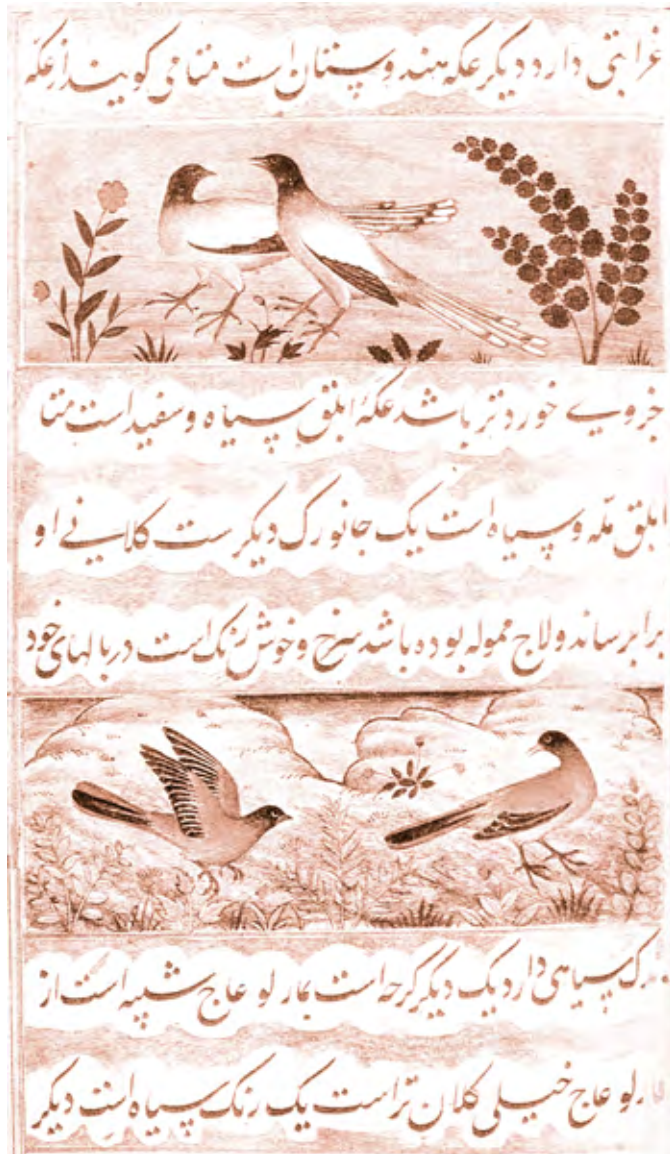 غرابتی دارد دیکر عکه هندوستان است متا می کویند از عکه
جزویے خورد تر باشد عکهٔ ابلق سیاه و سفید است متا
ابلق ملّه و سیاه است یک جانورک دیکر ست کلانے او
برابر ساندولاج مموله بوده باشد سرخ و خوش رنک است در بالهای خود
سیاهی دارد یک دیکر کرجه است بمارلوعاج شبیه است از
لوعاج خیلی کلان تر است یک رنک سیاه است دیکر